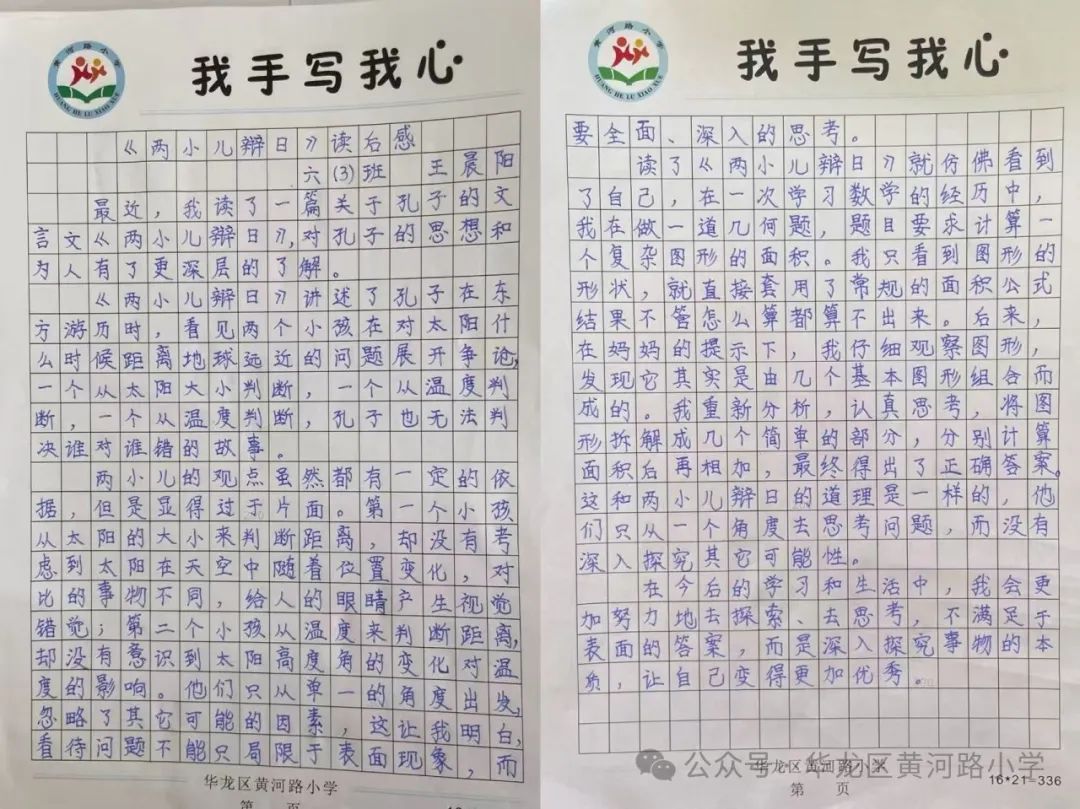 黄河路小学
HUANG HE LU XIAO XUE
我手写我心
《两小儿辩日》读后感
六(3)班 王晨阳
最近，我读了一篇关于孔子的文
言文《两小儿辩日》，对孔子的思想和
为人有了更深层的了解。
《两小儿辩日》讲述了孔子在东
方游历时，看见两个小孩在对太阳什
么时候距离地球远近的问题展开争论，
一个从太阳大小判断，一个从温度判
断，一个从温度判断，孔子也无法判
决谁对谁错的故事。
两小儿的观点虽然都有一定的依
据，但是显得过于片面。第一个小孩
从太阳的大小来判断距离，却没有考
虑到太阳在天空中随着位置变化，对
比的事物不同，给人的眼睛产生视觉
错觉；第二个小孩从温度来判断距离，
却没有意识到太阳高度角的变化对温
度的影响。他们只从单一的角度出发，
忽略了其它可能的因素，这让我明白，
看待问题不能只局限于表面现象，而
华龙区黄河路小学
第 页
黄河路小学
HUANG HE LU XIAO XUE
我手写我心
要全面、深入的思考。
读了《两小儿辩日》就仿佛看到
了自己，在一次学习数学的经历中，
我在做一道几何题，题目要求计算一
个复杂图形的面积。我只看到图形的
形状，就直接套用了常规的面积公式
结果不管怎么算都算不出来。后来，
在妈妈的提示下，我仔细观察图形，
发现它其实是由几个基本图形组合而
成的。我重新分析，认真思考，将图
形拆解成几个简单的部分，分别计算
面积后再相加，最终得出了正确答案。
这和两小儿辩日的道理是一样的，他
们只从一个角度去思考问题，而没有
深入探究其它可能性。
在今后的学习和生活中，我会更
加努力地去探索、去思考，不满足于
表面的答案，而是深入探究事物的本
质，让自己变得更加优秀。
华龙区黄河路小学
公众号·华龙区黄河路小学
第 页
16*21-336